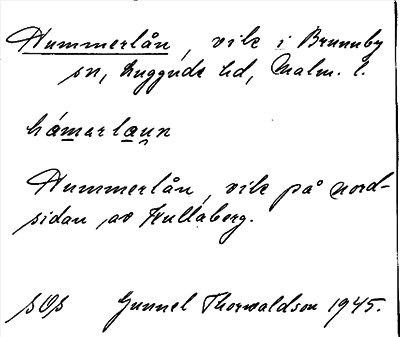 Hummerlån, vik i Brunnby
sn, Luggude hd, Malm. l.
hámarlau̯n
Hummerlån, vik på nord-
sidan av Kullaberg.
SOS Gunnel Thorwaldson 1945.